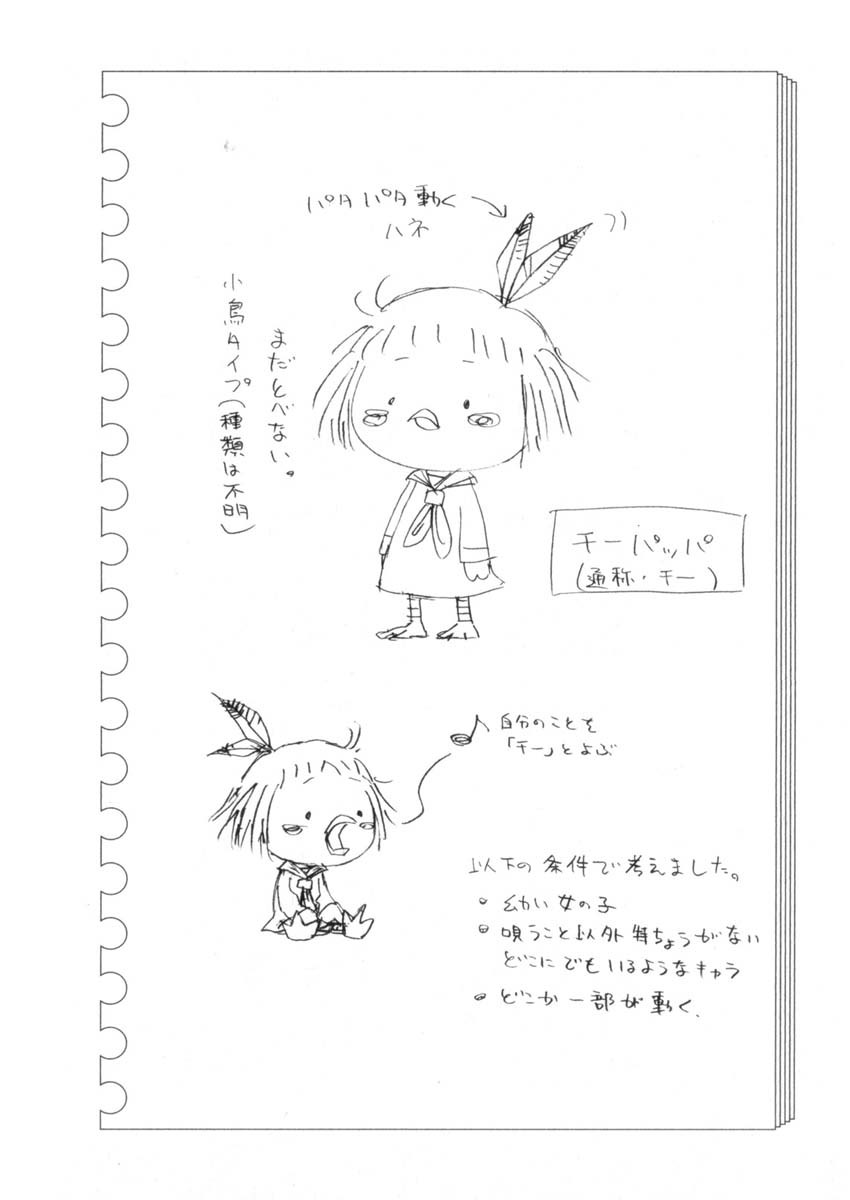 パタパタ動く
ハネ
まだとべない。
小鳥タイプ(種類は不明)
チーパッパ
(通称・チー)
自分のことを
「チー」とよぶ
以下の条件で考えました。
• 幼い女の子
• 唄うこと以外特ちょうがない
どこにでもいるようなキャラ
• どこか一部が動く.